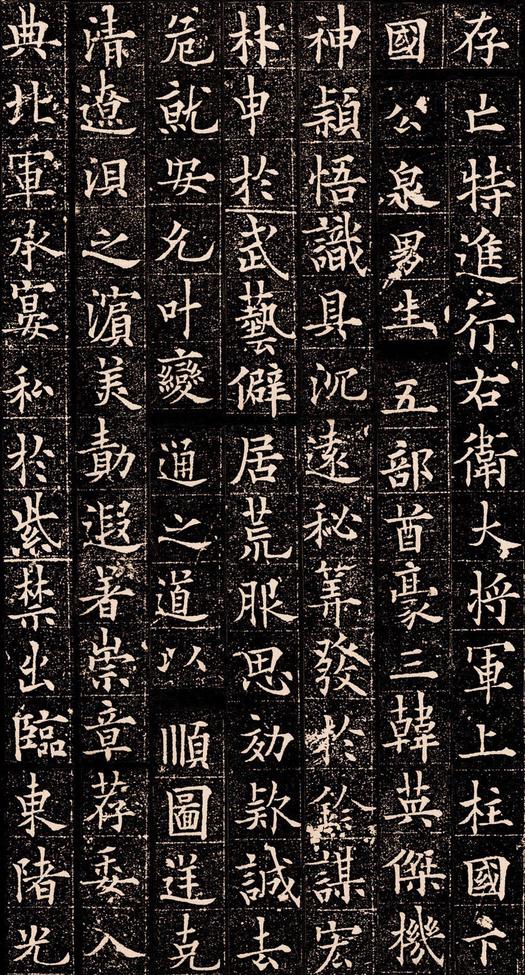 存亡特進行右衛大将軍上柱國卞
國公泉男生五部酋豪三韓英傑機
神穎悟識具沉遠秘筭發於鈐謀宏
林申於武藝僻居荒服思効款誠去
危就安允叶變通之道以順圖逆克
清遼浿之濱美勣遐著崇章荐委入
典北軍承宴私於紫禁出臨東陼光